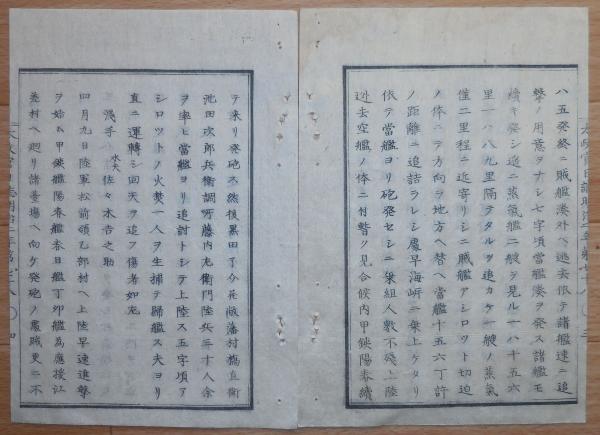 八五発終ニ賊艦湊外ヘ逃去依テ諸艦速ニ追
撃ノ用意ヲナシ七字頃當艦湊ヲ発ス諸艦モ
續キ発シ遥ニ蒸氣艦二艘ヲ見ル一ハ十五六
里一ハ八九里隔テタルヲ追カケ一艘ノ蒸氣
僅二里程ニ近寄リシニ賊艦アシロツト切迫
ノ体ニテ方向ヲ地方ヘ替ヘ當艦十五六丁許
ノ距離ニ追詰ラレシ處早海岍ニ乗上ケタリ
依テ當艦ヨリ砲発セシニ乗組人數不殘上陸
逃去空艦ノ体ニ付暫ク見合候内甲鉄陽春續
テ来リ発砲ス然後黒田了介兵隊藩村橋直衛
池田次郎兵衛調所藤内左衛門陸兵三十人余
ヲ率ヒ當艦ヨリ追討トシテ上陸ス五字頃ア
シロツトノ火焚一人ヲ生捕テ歸艦ス夫ヨリ
直ニ運轉シ回天ヲ追フ傷者如左
浅手 水夫 佐々木吉之助
四月九日陸軍松前領乙部村ヘ上陸早速進撃
ヲ始ム甲鉄艦陽春艦春日艦丁卯艦為應援江
差村ヘ廻リ諸臺場ヘ向ケ発砲ノ處賊更ニ不